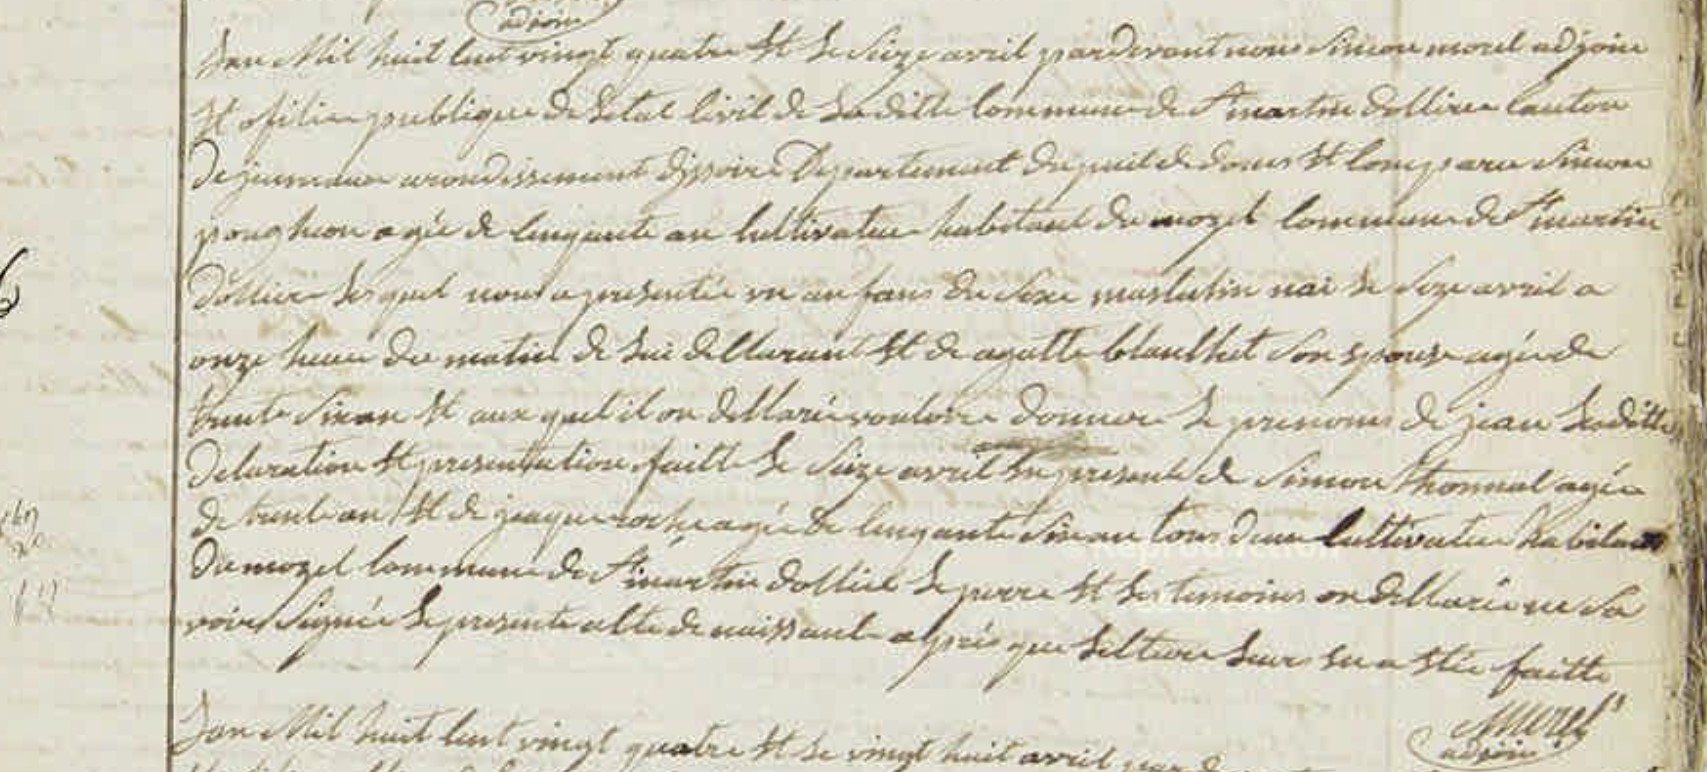 adjoin
Lan Mil huit cent vingt quatre et le seize avril pardevant nous simon morel adjoin
et ofisier publique de letat civil de la ditte commune de St martin dollier canton
de jumeaux arondissement dissoire Departement du puit de dome et comparu simon
poughon agée de cinquante an cultivateur habitant du mozel commune de St martin
dollier lesquel nous a presentée un anfans du sexe masculin nai le seize avril a
onze heure du matin de lui declarant et de agatte blanchet son epouse agée de
trente six an et aux quel il on declarée vouloire donner le prenoms de jean la ditte
declaration et presentation faitte le seize avril en presente de simon agée
de trente an et de jaque roche agée de cinquante six an tous deux cultivateur habitant
du mozel commune de St martin dollier le perre et les temoins on declarée ne sa
voire signée le presente acte de naissante après que lecture leurs en a etée faitte
Morel
adjoin
Lan Mil huit cent vingt quatre et le vingt huit avril